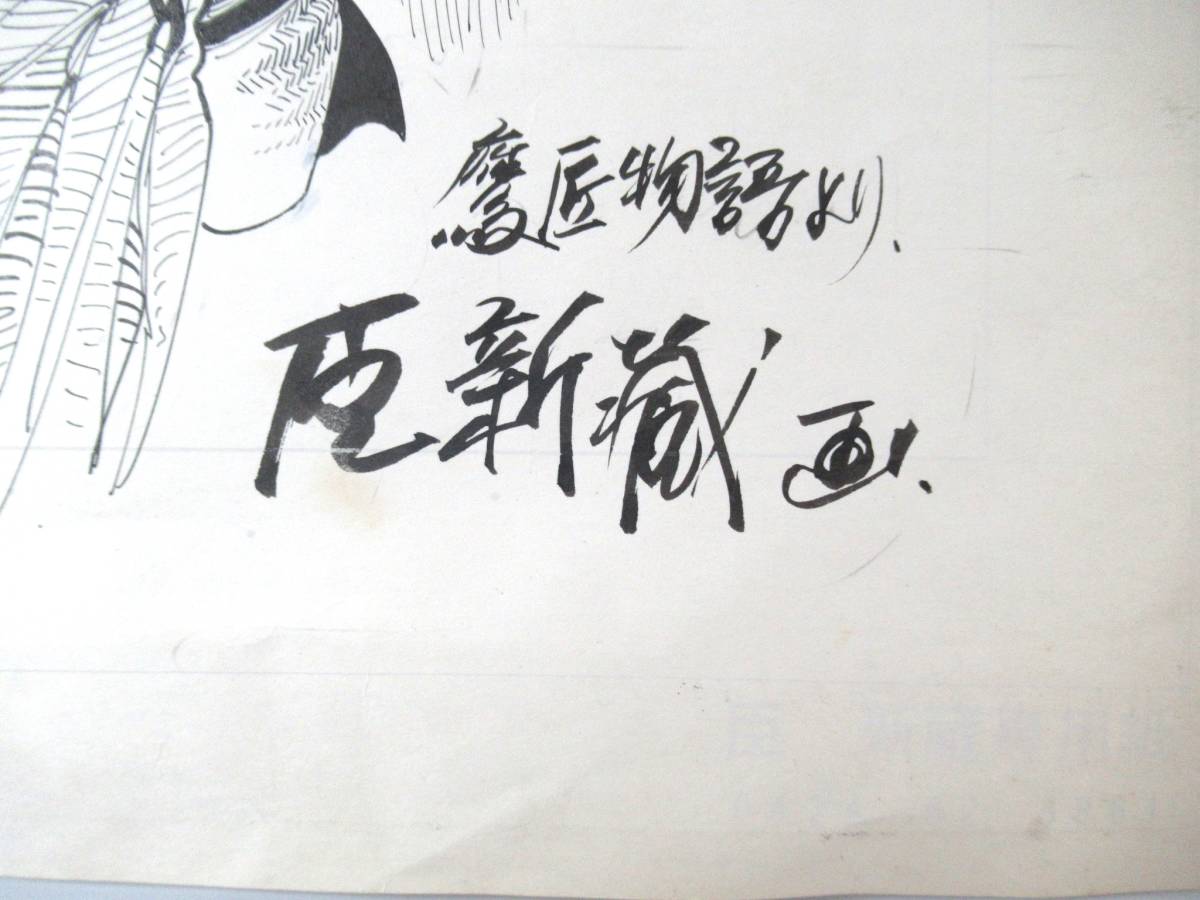 鷹匠物語より.
臣新蔵画.